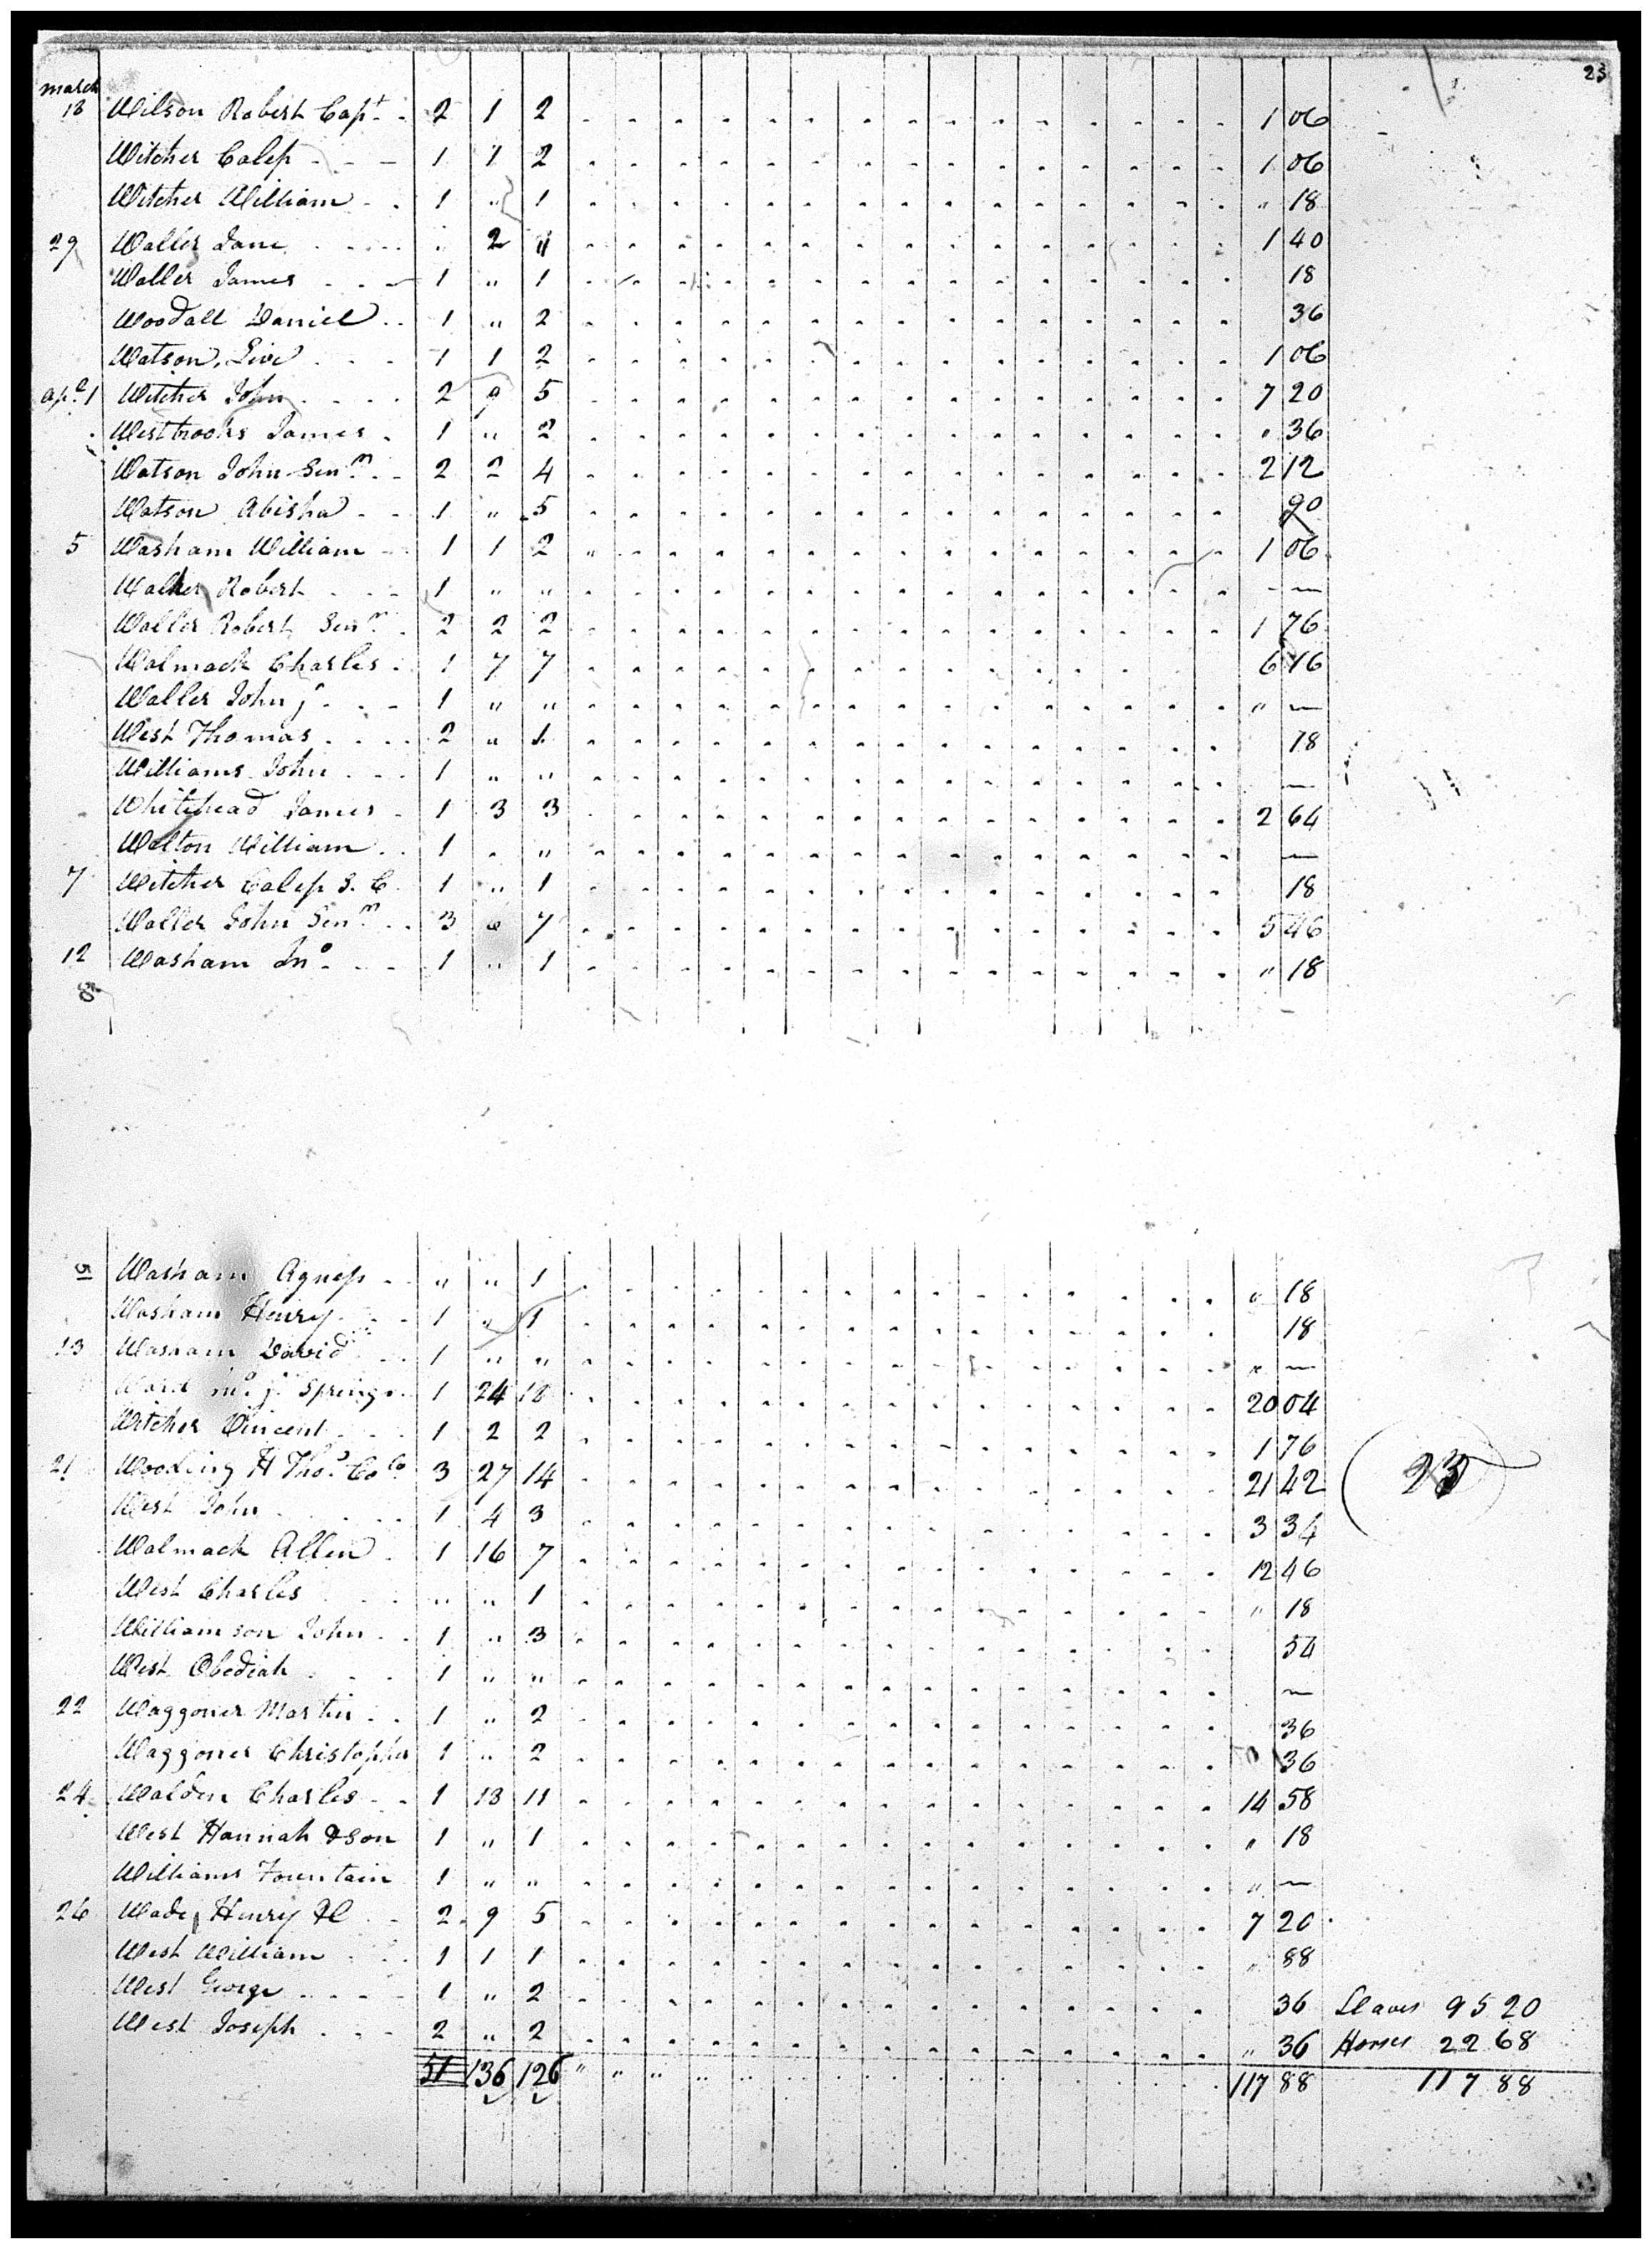 23
march
18 Wilson Robert Capt 2 1 2 1 06
Witcher Calep 1 1 2 1 06
Witcher William 1 " 1 " 18
29 Waller Jane " 2 " 1 40
Waller James 1 " 1 18
Woodall Daniel 1 " 2 36
Watson 1 1 2 1 06
Witcher John 2 9 5 7 20
Westbrooks James 1 " 2 " 36
Watson John Senr 2 2 4 2 12
Watson Abisha 1 " 5 90
5 Washam William 1 1 2 1 06
Walker Robert 1 " " —
Waller Robert Senr 2 2 2 1 76
Walmack Charles 1 7 7 6 16
Waller John jr 1 " " " —
West Thomas 2 " 1 18
Williams John 1 " " —
Whitehead James 1 3 3 2 64
Walton William 1 " " —
7 Witcher Calep S. C. 1 " 1 18
Waller John Senr 3 6 7 5 46
12 Washam Jno 1 " 1 " 18
50
51 Washam Agness " " 1 " 18
Washam Henry 1 " 1 18
13 Washam David 1 " " " —
Ward Jno jr Springs 1 24 18 20 04
Witcher Vincent 1 2 2 1 76
21 Wooding H Thos Co 3 27 14 21 42
23
West John 1 4 3 3 34
Walmack Allen 1 16 7 12 46
West Charles " " 1 " 18
Williamson John 1 " 3 54
West Obediah 1 " " —
22 Waggoner Martin 1 " 2 36
Waggoner Christopher 1 " 2 36
24 Walden Charles 1 18 11 14 58
West Hannah & Son 1 " 1 " 18
Williams Fountain 1 " " " —
26 Wade Henry 2 9 5 7 20
West William 1 1 1 " 88
West George 1 " 2 36 Slaves 95 20
West Joseph 2 " 2 " 36 Horses 22 68
51 136 126 117 88 117 88